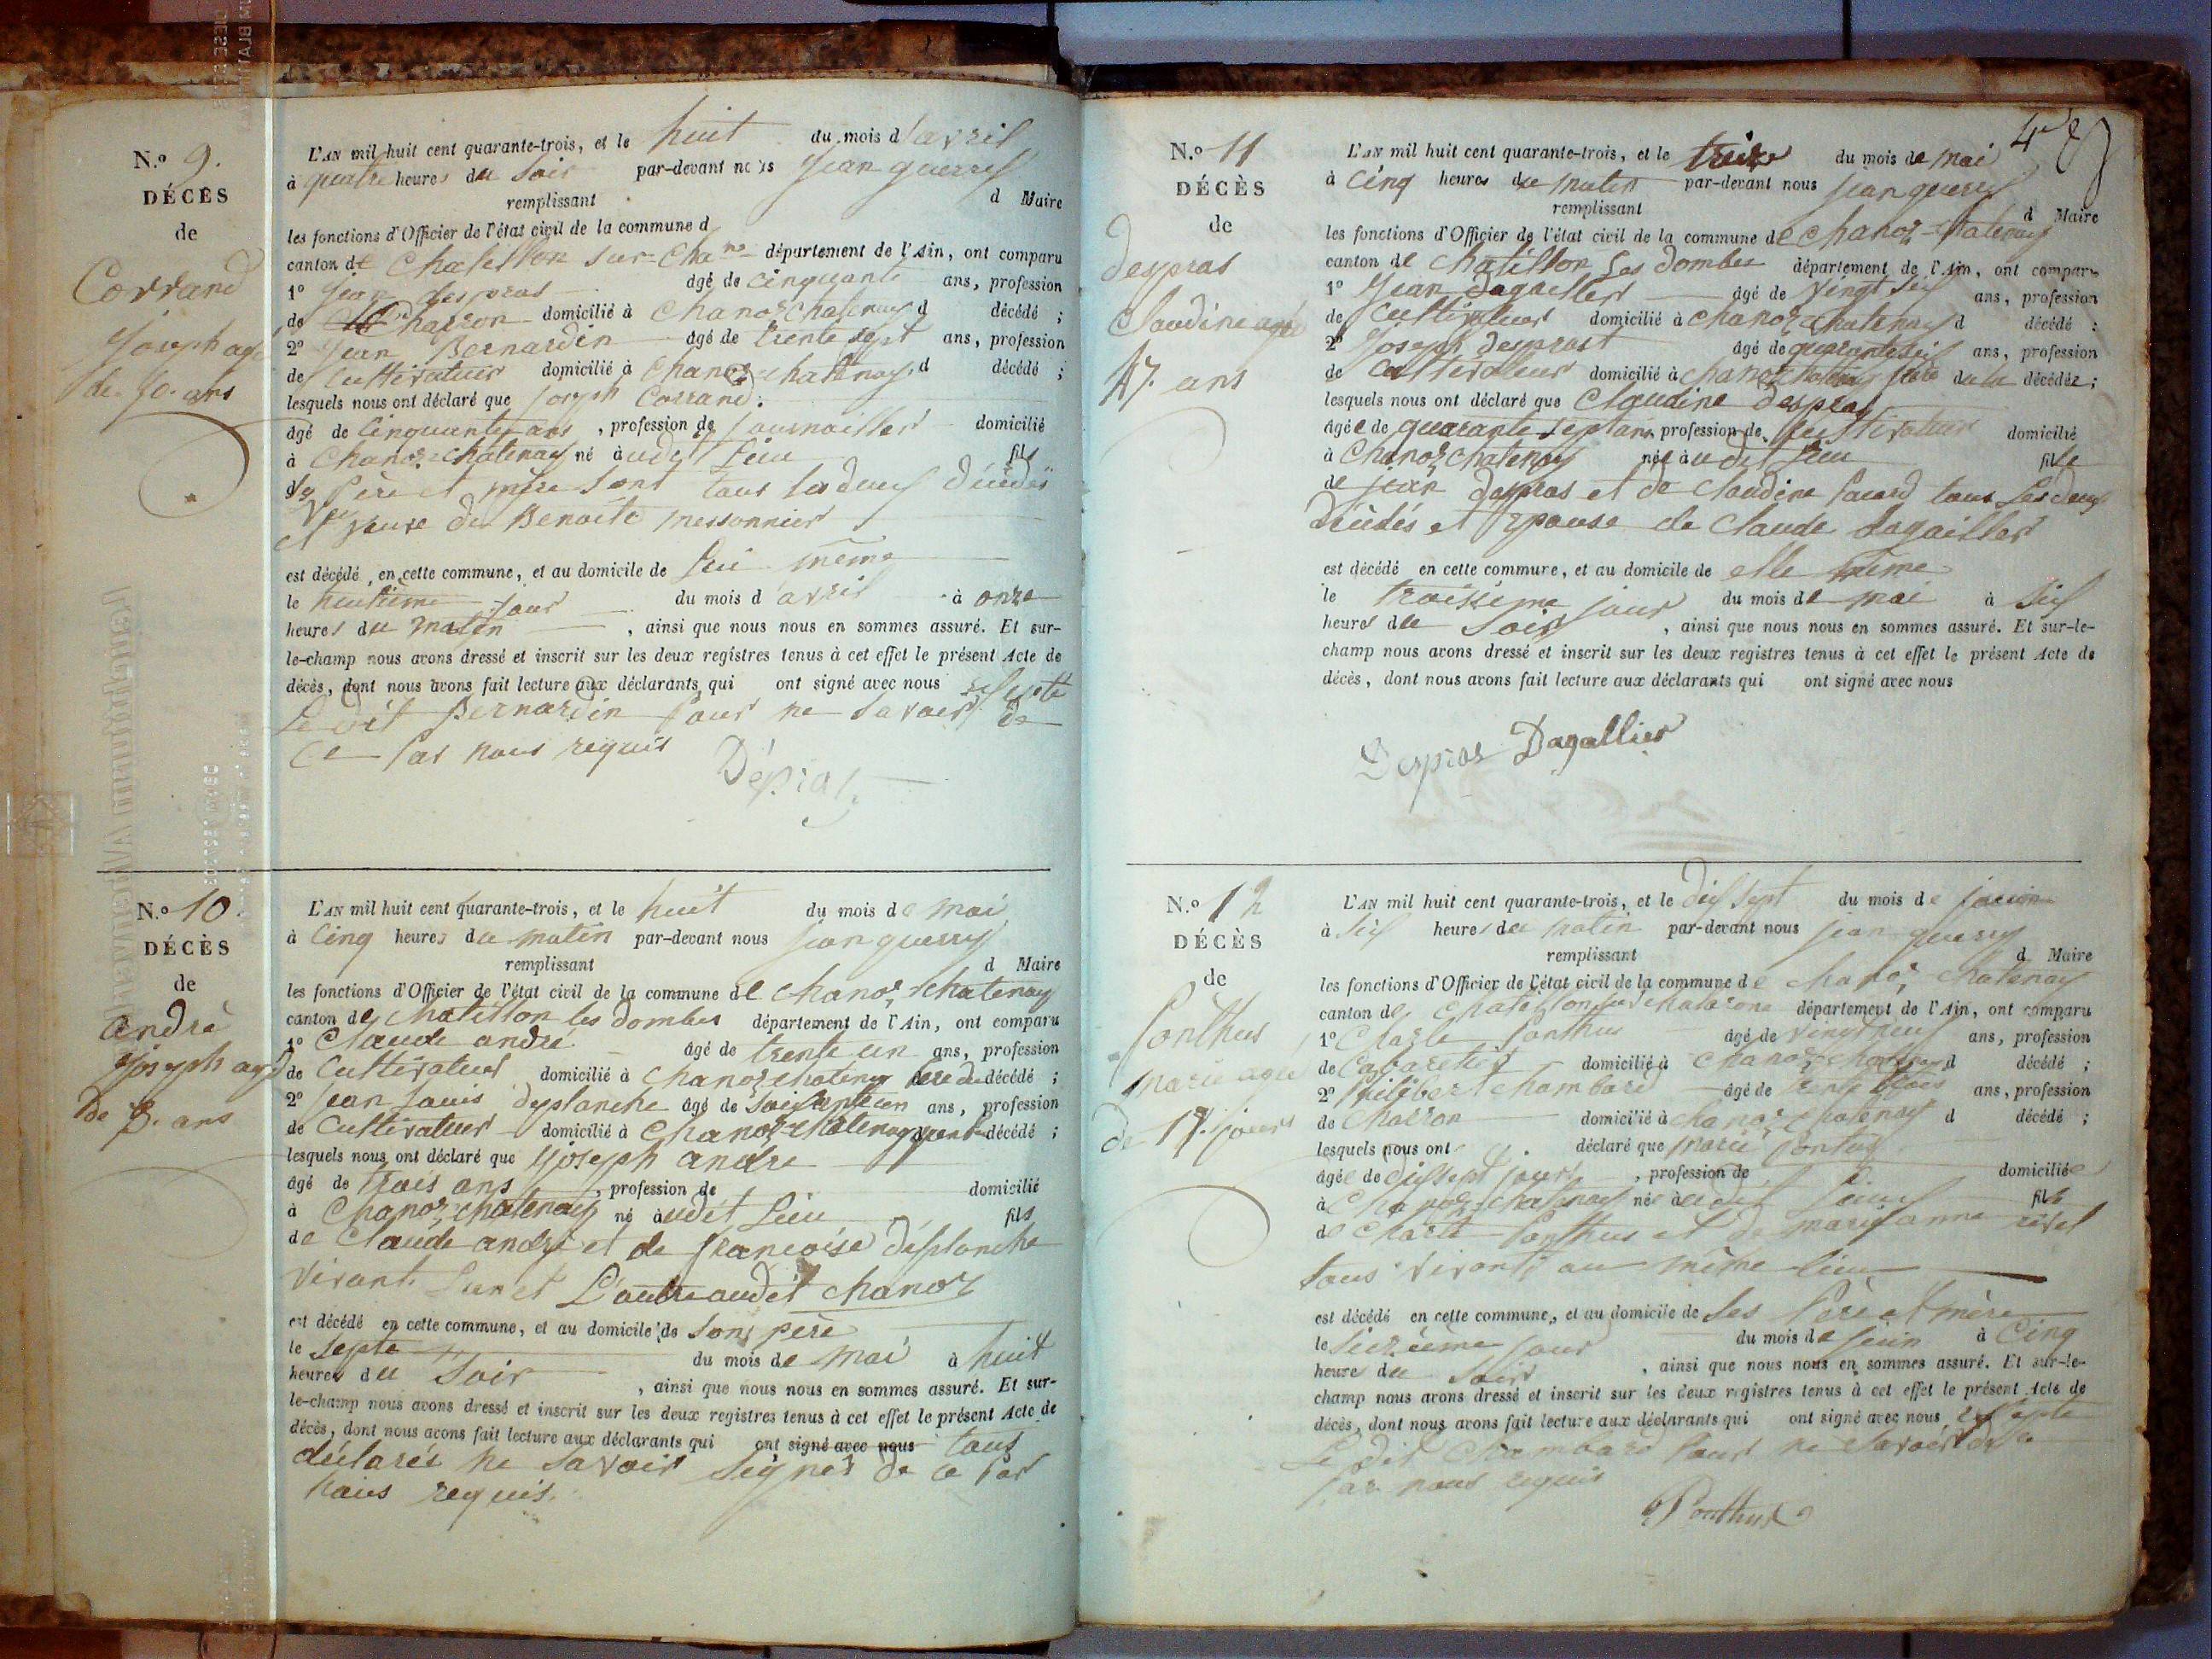 N.º 9.
DÉCÈS
de
Corrand
Joseph agé
de 50. ans
L'AN mil huit cent quarante-trois, et le huit du mois d'avril
à quatre heures du Soir par-devant nous jean guerry
remplissant d Maire
les fonctions d'Officier de l'état civil de la commune d
canton de Chatillon sur Cha.ne département de l'Ain, ont comparu
1º Jean despras âgé de cinquante ans, profession
de Charron domicilié à Chanoz chatenay d décédé ;
2º Jean Bernardin âgé de trente sept ans, profession
de Cultivateur domicilié à Chanoz chatenay d décédé ;
lesquels nous ont déclaré que joseph Corrand.
âgé de Cinquante ans, profession de journailler domicilié
à Chanoz-chatenay né à udit lieu fils
de père et mère sont tous les deux décédés
et veuve de Benoite messonnier
est décédé en cette commune, et au domicile de lui même
le huitième jour du mois d'avril à onze
heures du matin, ainsi que nous nous en sommes assuré. Et sur-
le-champ nous avons dressé et inscrit sur les deux registres tenus à cet effet le présent Acte de
décès, dont nous avons fait lecture aux déclarants qui ont signé avec nous
Le dit Bernardin pour ne savoir de
ce par nous requis
Dépras
N.º 10.
DÉCÈS
de
andré
joseph agé
de 3. ans
L'AN mil huit cent quarante-trois, et le huit du mois de mai
à Cinq heures du matin par-devant nous jean guerry
remplissant d Maire
les fonctions d'Officier de l'état civil de la commune de Chanoz chatenay
canton de Chatillon les dombes département de l'Ain, ont comparu
1º Claude andré âgé de trente un ans, profession
de Cultivateur domicilié à Chanoz chatenay père du décédé ;
2º jean louis deplanche âgé de soixante un ans, profession
de Cultivateur domicilié à Chanoz-chatenay décédé ;
lesquels nous ont déclaré que joseph andre
âgé de trois ans, profession de domicilié
à Chanoz chatenay né audit lieu fils
de Claude andré et de françoise déplanche
vivant l'un et L'autre audit chanoz
est décédé en cette commune, et au domicile de son père
le septe du mois de mai à huit
heures du soir, ainsi que nous nous en sommes assuré. Et sur-
le-champ nous avons dressé et inscrit sur les deux registres tenus à cet effet le présent Acte de
décès, dont nous avons fait lecture aux déclarants qui ont signé avec nous tous
déclarés ne savoir signer de ce par
nous requis.
4
N.º 11
DÉCÈS
de
despras
Claudine agée
47. ans
L'AN mil huit cent quarante-trois, et le treize du mois de mai
à Cinq heures du matin par-devant nous jean guerry
remplissant d Maire
les fonctions d'Officier de l'état civil de la commune de Chanoz-Chatenay
canton de Chatillon les dombes département de l'Ain, ont comparu
1º Jean Dagallier âgé de vingt six ans, profession
de Cultivateur domicilié à Chanoz chatenay d décédé ;
2º Joseph desprast âgé de quarante six ans, profession
de Cultivateur domicilié à chanoz chatenay frère de la décédée ;
lesquels nous ont déclaré que Claudine despras
âgée de quarante sept ans, profession de Cultivateur domicilié
à Chanoz chatenay née audit lieu fille
de jean despras et de Claudine tous les deux
décédés et Epouse de Claude dagailler
est décédé en cette commune, et au domicile de elle même
le troisième jour du mois de mai à six
heures du soir, ainsi que nous nous en sommes assuré. Et sur-le-
champ nous avons dressé et inscrit sur les deux registres tenus à cet effet le présent Acte de
décès, dont nous avons fait lecture aux déclarants qui ont signé avec nous
Despras Dagallier
N.º 12
DÉCÈS
de
Ponthus
marie agée
de 17. jours
L'AN mil huit cent quarante-trois, et le dix sept du mois de
à six heures du matin par-devant nous jean guerry
remplissant d Maire
les fonctions d'Officier de l'état civil de la commune de chanoz chatenay
canton de Chatillon sur chalarone département de l'Ain, ont comparu
1º Charle Ponthus âgé de vingt neuf ans, profession
de Cabaretier domicilié à chanoz chatenay d décédé ;
2º Philibert chambard âgé de trente trois ans, profession
de Charron domicilié à chanoz chatenay d décédé ;
lesquels nous ont déclaré que marie pontus
âgée de dix sept jours, profession de domiciliée
à Chanoz chatenay née audit lieu fille
de Charle Ponthus et de marie anne revel
tous vivants au même lieu
est décédé en cette commune, et au domicile de ses Père et mère
le seizième jour du mois de juin à Cinq
heures du soir, ainsi que nous nous en sommes assuré. Et sur-le-
champ nous avons dressé et inscrit sur les deux registres tenus à cet effet le présent Acte de
décès, dont nous avons fait lecture aux déclarants qui ont signé avec nous
Le dit Chambard pour ne savoir de ce
par nous requis
Ponthus